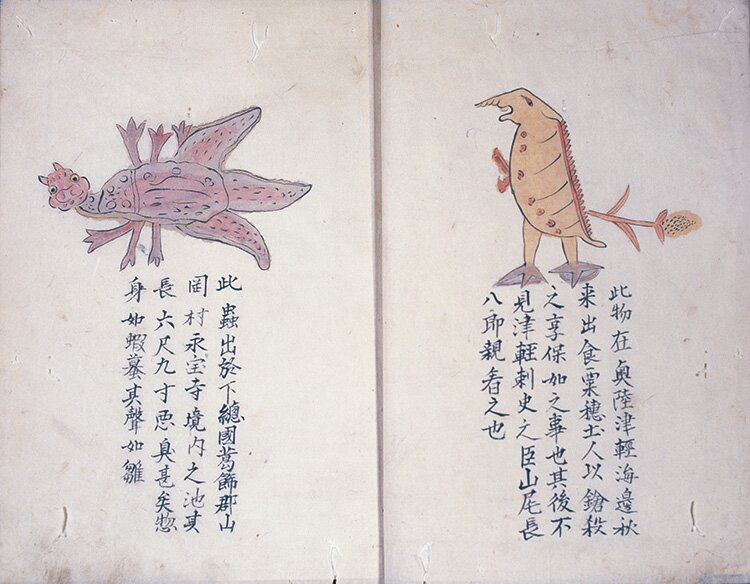 此物在奥陸津輕海邊秋
来出食粟穂土人以鎗殺
之享保如之事也其後不
見津輕刺史之臣山尾長
八郎親看之也
此蟲出於下總國葛飾郡山
岡村永宝寺境内之池其
長六尺九寸悪臭甚矣惣
身如蝦蟇其聲如雛